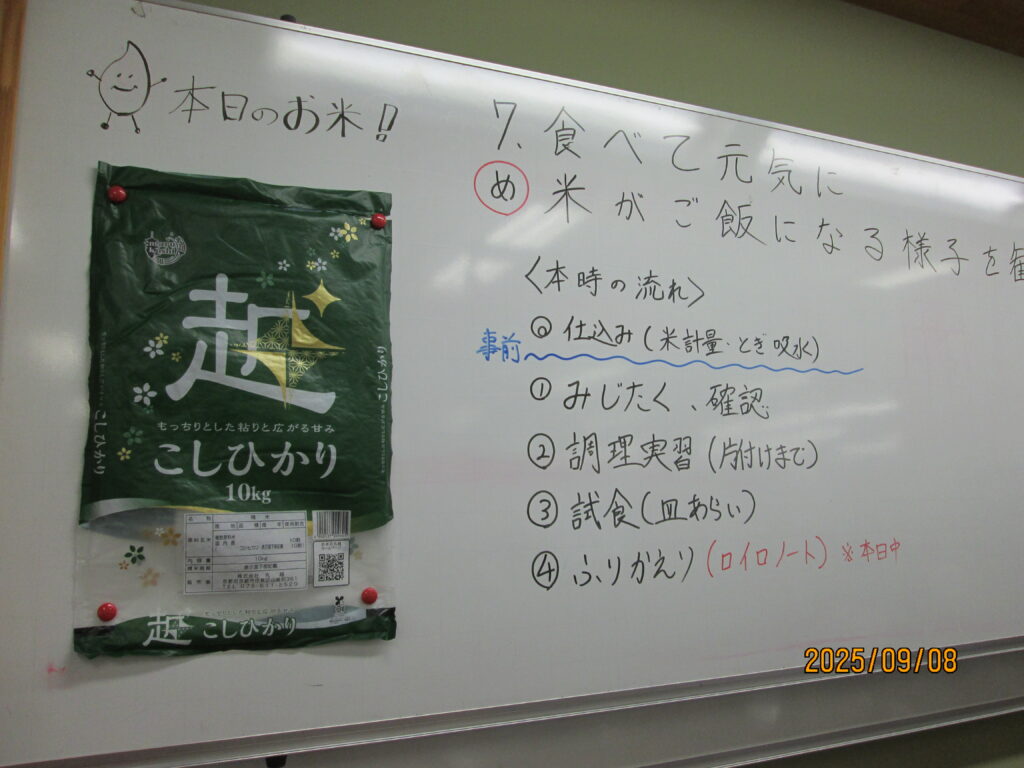 本日のお米!!
7、食べて元気に
め 米がご飯になる様子を
〈本時の流れ〉
事前
⓪ 仕込み(米計量・とぎ吸水)
① みじたく、確認
② 調理実習(片付けまで)
③ 試食(皿あらい)
④ ふりかえり(ロイロノート)※本日中
越
もっちりとした粘りと広がる甘み
こしひかり
10kg
こしひかり
こしひかり
越 こしひかり
2025/09/08